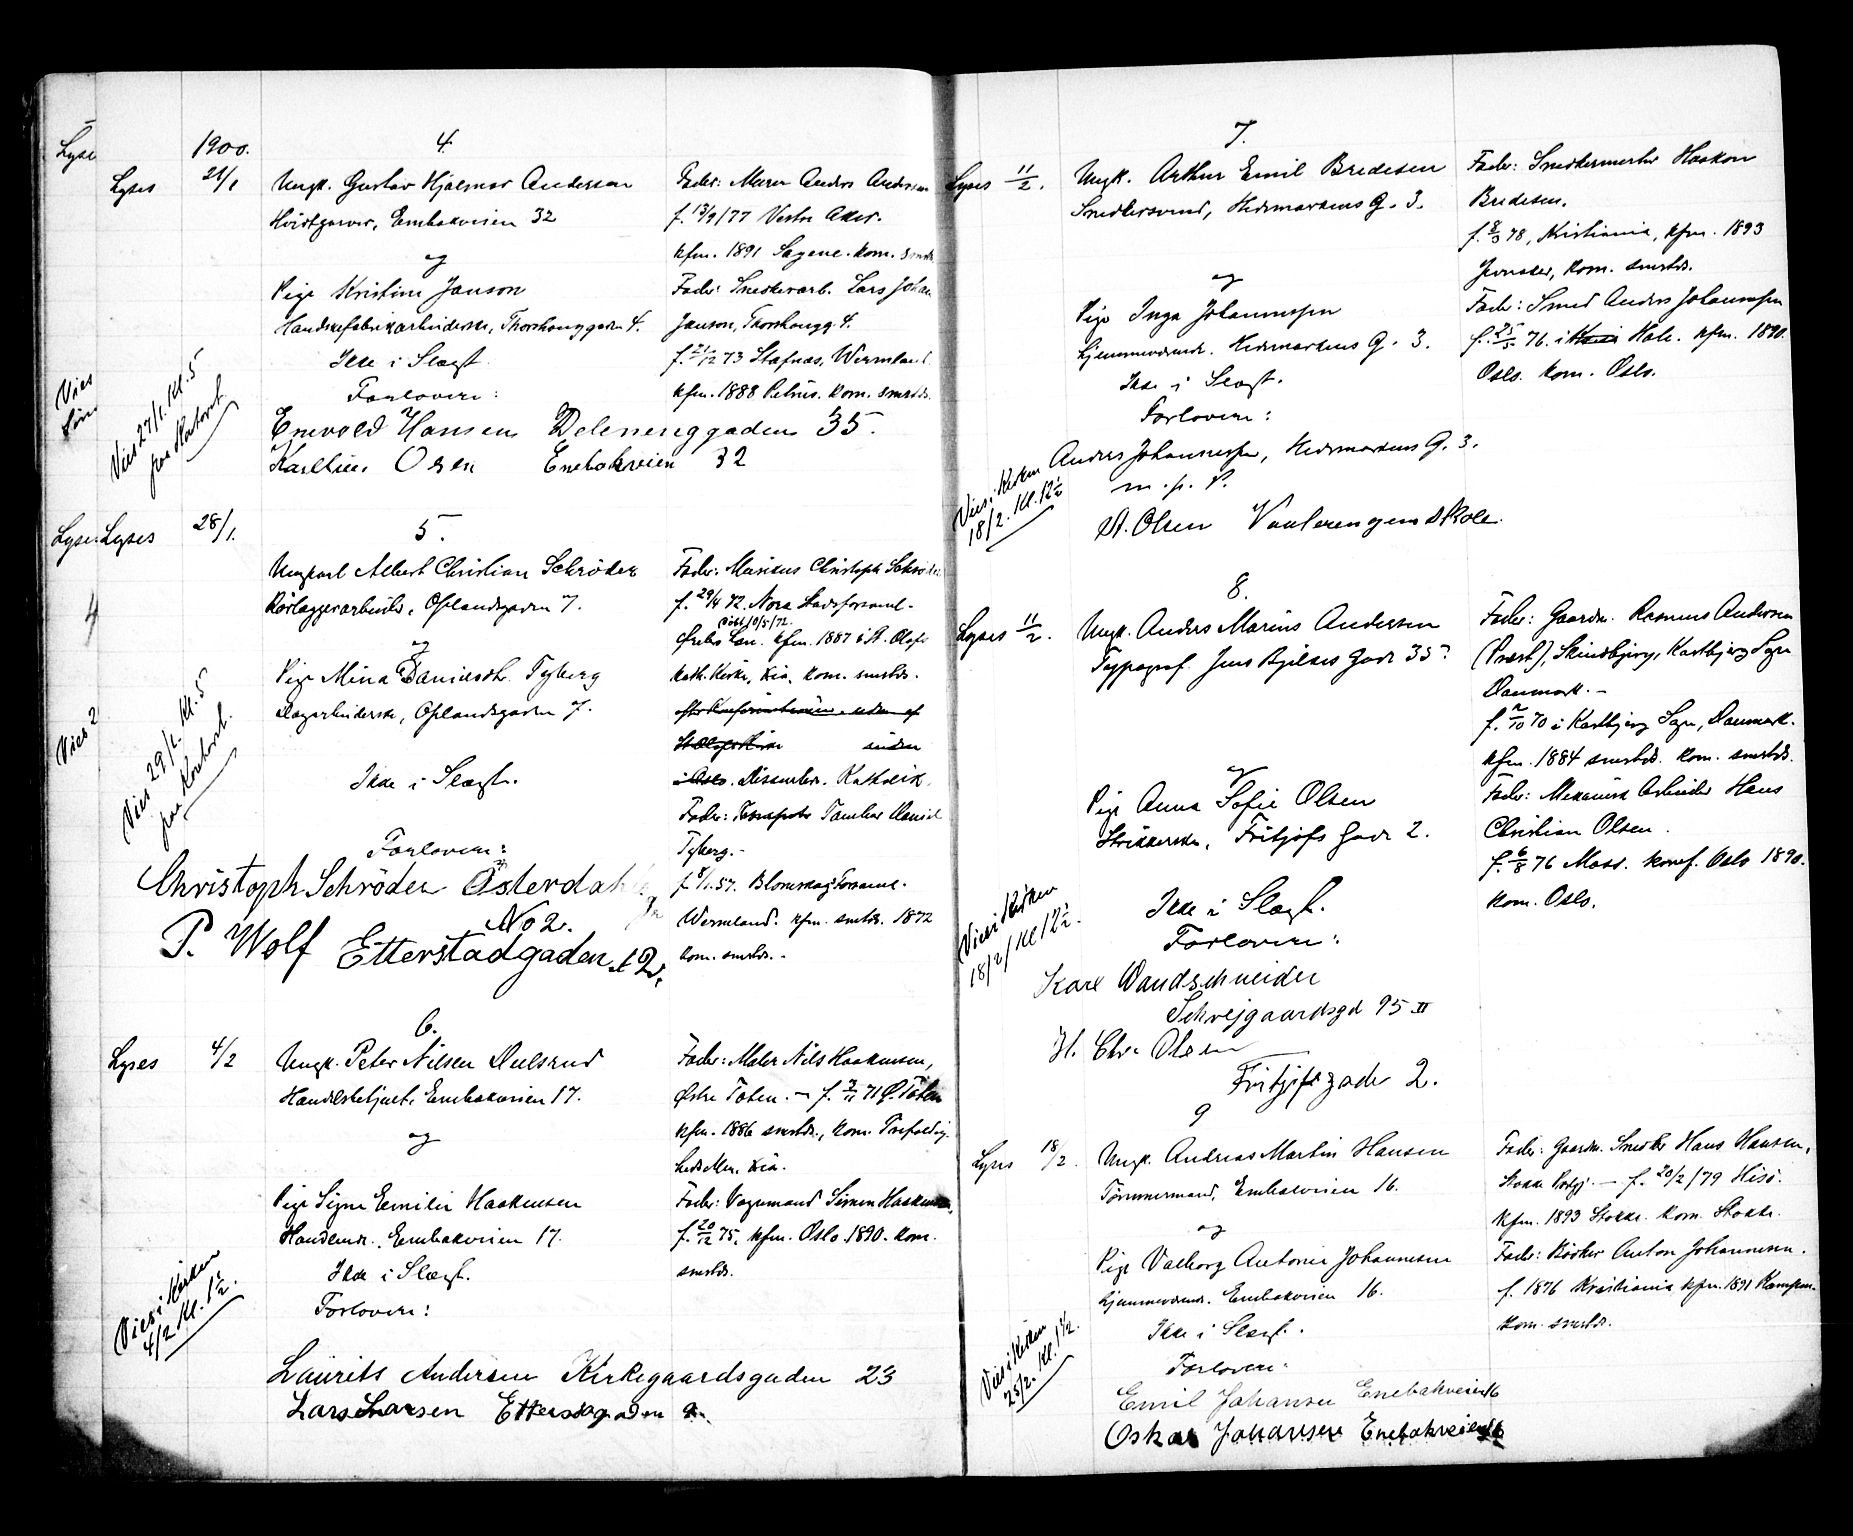 1900.
4.
Lyses 21/1
Ungk. Gustav Hjalmar Anderson
Hvidtgarver, Enebakveien 32
og
Pige Kristine Janson
Handskefabrikarbeiderske, Thorshauggaden 4.
Ikke i Slægt.
Forlovere:
Enevold Hansen Delenenggaden 35.
Olsen Enebakveien 32
Vies 27/1. Kl. 5
paa Kontoret
Fader: Murer Anders Anderson
f. 13/9/77 Vestre Aker.
kfm. 1891 Sagene. kom. smstds.
Fader: Snedkerarb. Lars Johan
Janson, Thorshaugg. 4.
f. 21/12 73 Stafnäs, Wermland.
kfm. 1888 Petrus. kom. smstds.
5.
Lyses 28/1.
Ungkarl Albert Christian Schrøder
Rørlæggerarbeider, Oplandsgaden 7.
og
Pige Mina Danielsdt. Tyberg
Dagarbeiderske, Oplandsgaden 7.
Ikke i Slægt.
Forlovere:
Christoph Schröder Österdahls
No 2.
P. Wolf Etterstadgaden 12.
Vies 29/1. Kl. 5
paa Kontoret.
Fader: Musikus Christoph Schrøder
f. 29/4 72. Nora Stadsforsaml.
døbt 10/5/72.
Ørebro Län. kfm. 1887 i St. Olafs
kath. Kirke, Kria. kom. smstds.
i Oslo. Dissenter. Katholik.
Fader: Tambur Daniel
Tyberg.
f. 8/1. 57. Blomskog Forsaml.
Wermland. kfm. smtds. 1872
kom. smstds.
6.
Lyses 4/2
Ungk. Peter Nilsen Dulsrud
Handelsbetjent, Enebakveien 17.
og
Pige Signe Emilie Haakensen
Handlende, Enebakveien 17.
Ikke i Slægt.
Forlovere:
Laurits Andersen Kirkegaardsgaden 23
Lars Larsen Etterstagaden
Vies i Kirken
4/2 Kl. 1½.
Fader: Maler Nils Haakensen,
Østre Toten. — f. 2/11 71 Ø. Toten
kfm. 1886 smstds., kom. Trefoldig-
hedsMen. Kria.
Fader: Vognmand Simen Haakensen,
f. 20/12 75, kfm. Oslo 1890. kom.
smstds.
7.
Lyses 11/2.
Ungk. Arthur Emil Bredesen
Snedkersvend, Hedemarkens G. 3.
og
Pige Inga Johannessen
hjemmeværende. Hedemarkens G. 3.
Ikke i Slægt.
Forlovere:
Anders Johannessen, Hedemarkens G. 3.
m. p. P.
A. Olsen Vaalerengens Skole.
Vies i Kirken
18/2. Kl. 12½
Fader: Snedkermester Haakon
Bredesen.
f. 8/3 78, Kristiania, kfm. 1893
Jevnaker, kom. smstds.
Fader: Smed Anders Johannessen
f. 25/5 76. i Hole. kfm. 1890.
Oslo. kom. Oslo.
8.
Lyses 11/2.
Ungk. Anders Marius Andersen
Typograf. Jens Bjelkes Gade 35.
og
Pige Anna Sofie Olsen
Strikkerske, Fritjofs Gade 2.
Ikke i Slægt.
Forlovere:
Karl Wandschneider
Schvejgaardsgd 95 II
H. Chr. Olsen
Fritjofsgade 2.
Vies i Kirken
18/2/ Kl 12½.
Fader: Gaardm. Rasmus Andersen
Skindbjerg, Kastbjerg Sogn
Danmark.
f. 7/10 70 i Kastbjerg Sogn, Danmark.
kfm. 1884 smstds. kom. smstds.
Fader: Mekanisk Arbeider Hans
Christian Olsen.
f. 6/8 76 Moss. konf. Oslo 1890.
kom. Oslo.
9
Lyses 18/2.
Ungk. Andreas Martin Hansen
Tømmermand, Enebakveien 16.
og
Pige Valborg Antonie Johannesen
hjemmeværende. Enebakveien 16.
Ikke i Slægt.
Forlovere:
Emil Johansen Enebakveien 16
Oskar Johansen Enebakveien 16
Vies i Kirken
25/2. Kl. 1½.
Fader: Gaardm. Snedker Hans Hansen,
Stokke Prstgj. — f. 20/2/79 Hisø.
kfm. 1893 Stokke. kom. Stokke.
Fader: Bødker Anton Johannesen.
f. 1876 Kristiania kfm. 1891 Kampen.
kom. smstds.